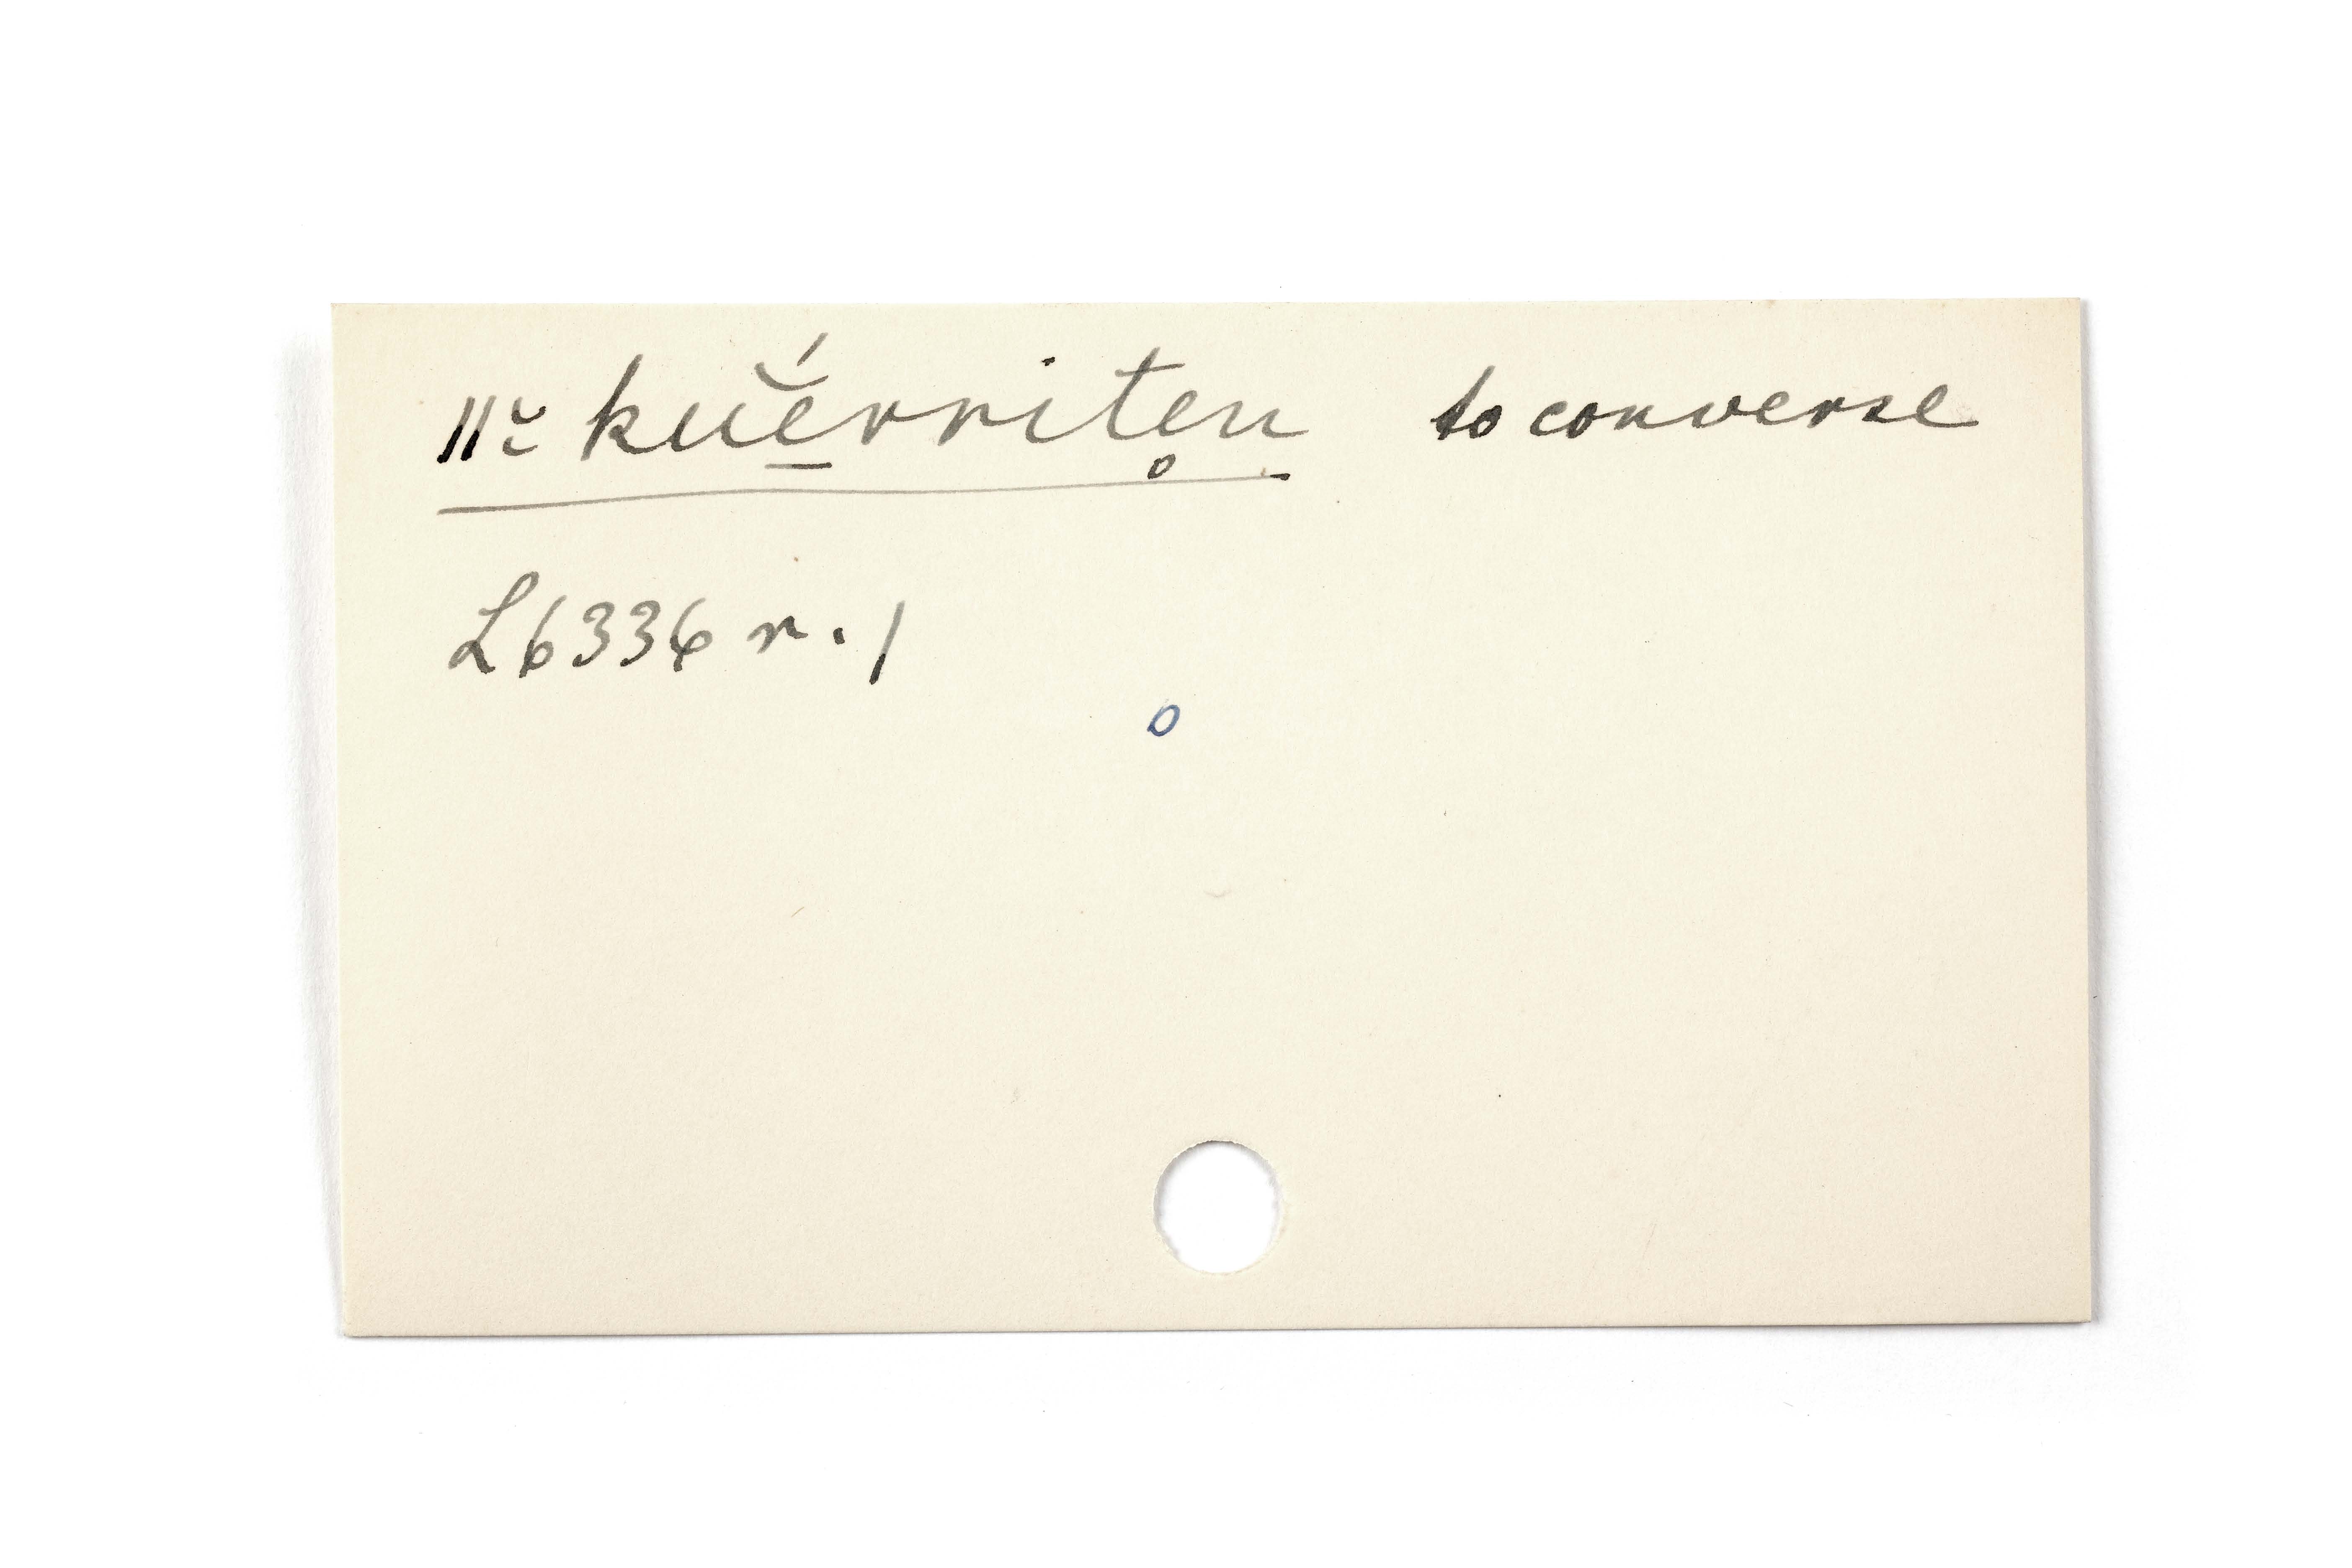 11ᵕ̃ kuḗ̱̆rriten̥ to converse
L6336 r. 1
o